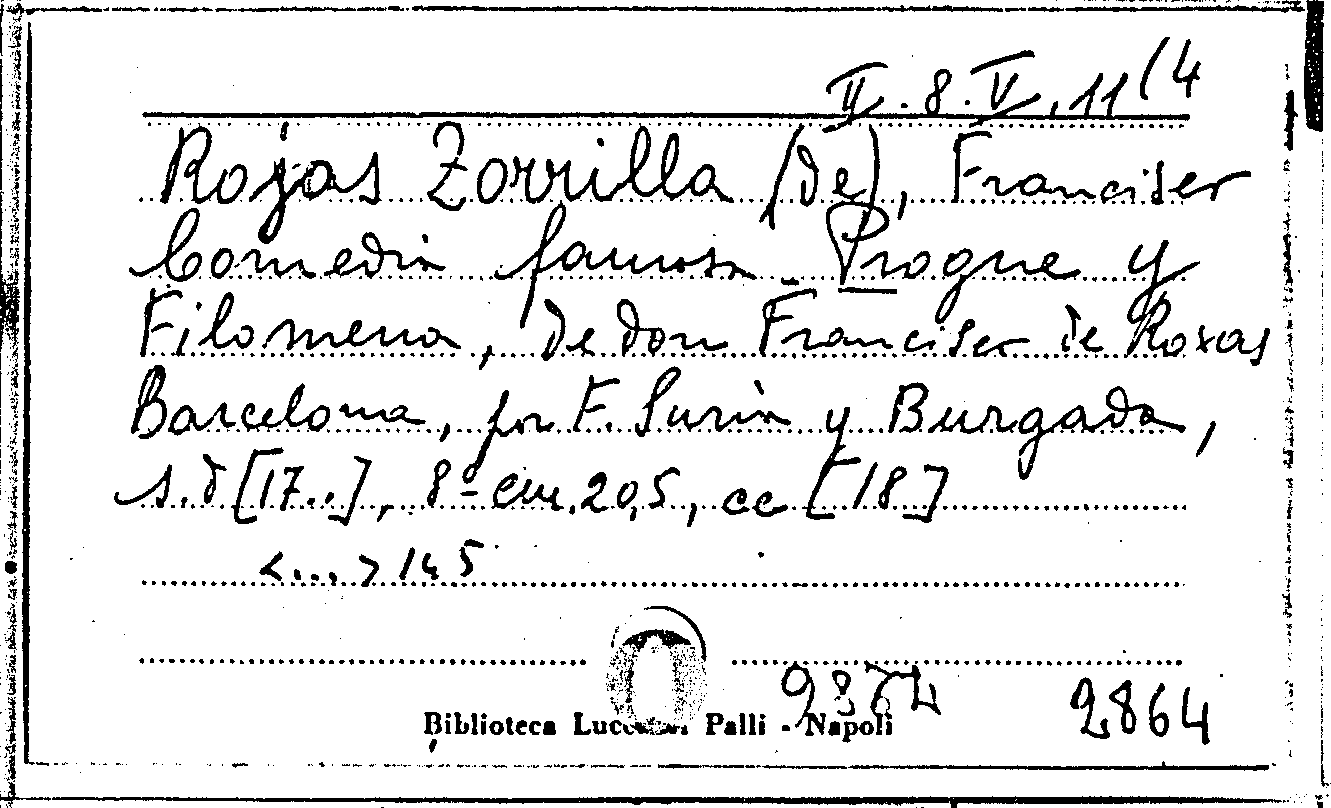 II. 8. V, 11 (4
Rojas Zorrilla (de), Francisco
Comedia famosa Progne y
Filomena, de don Francisco de Roxas
Barcelona, por F. Suriá y Burgada,
s.d [17..], 8º cm. 20,5, cc [18]
<...> 145
2864
Biblioteca Lucchesi Palli - Napoli